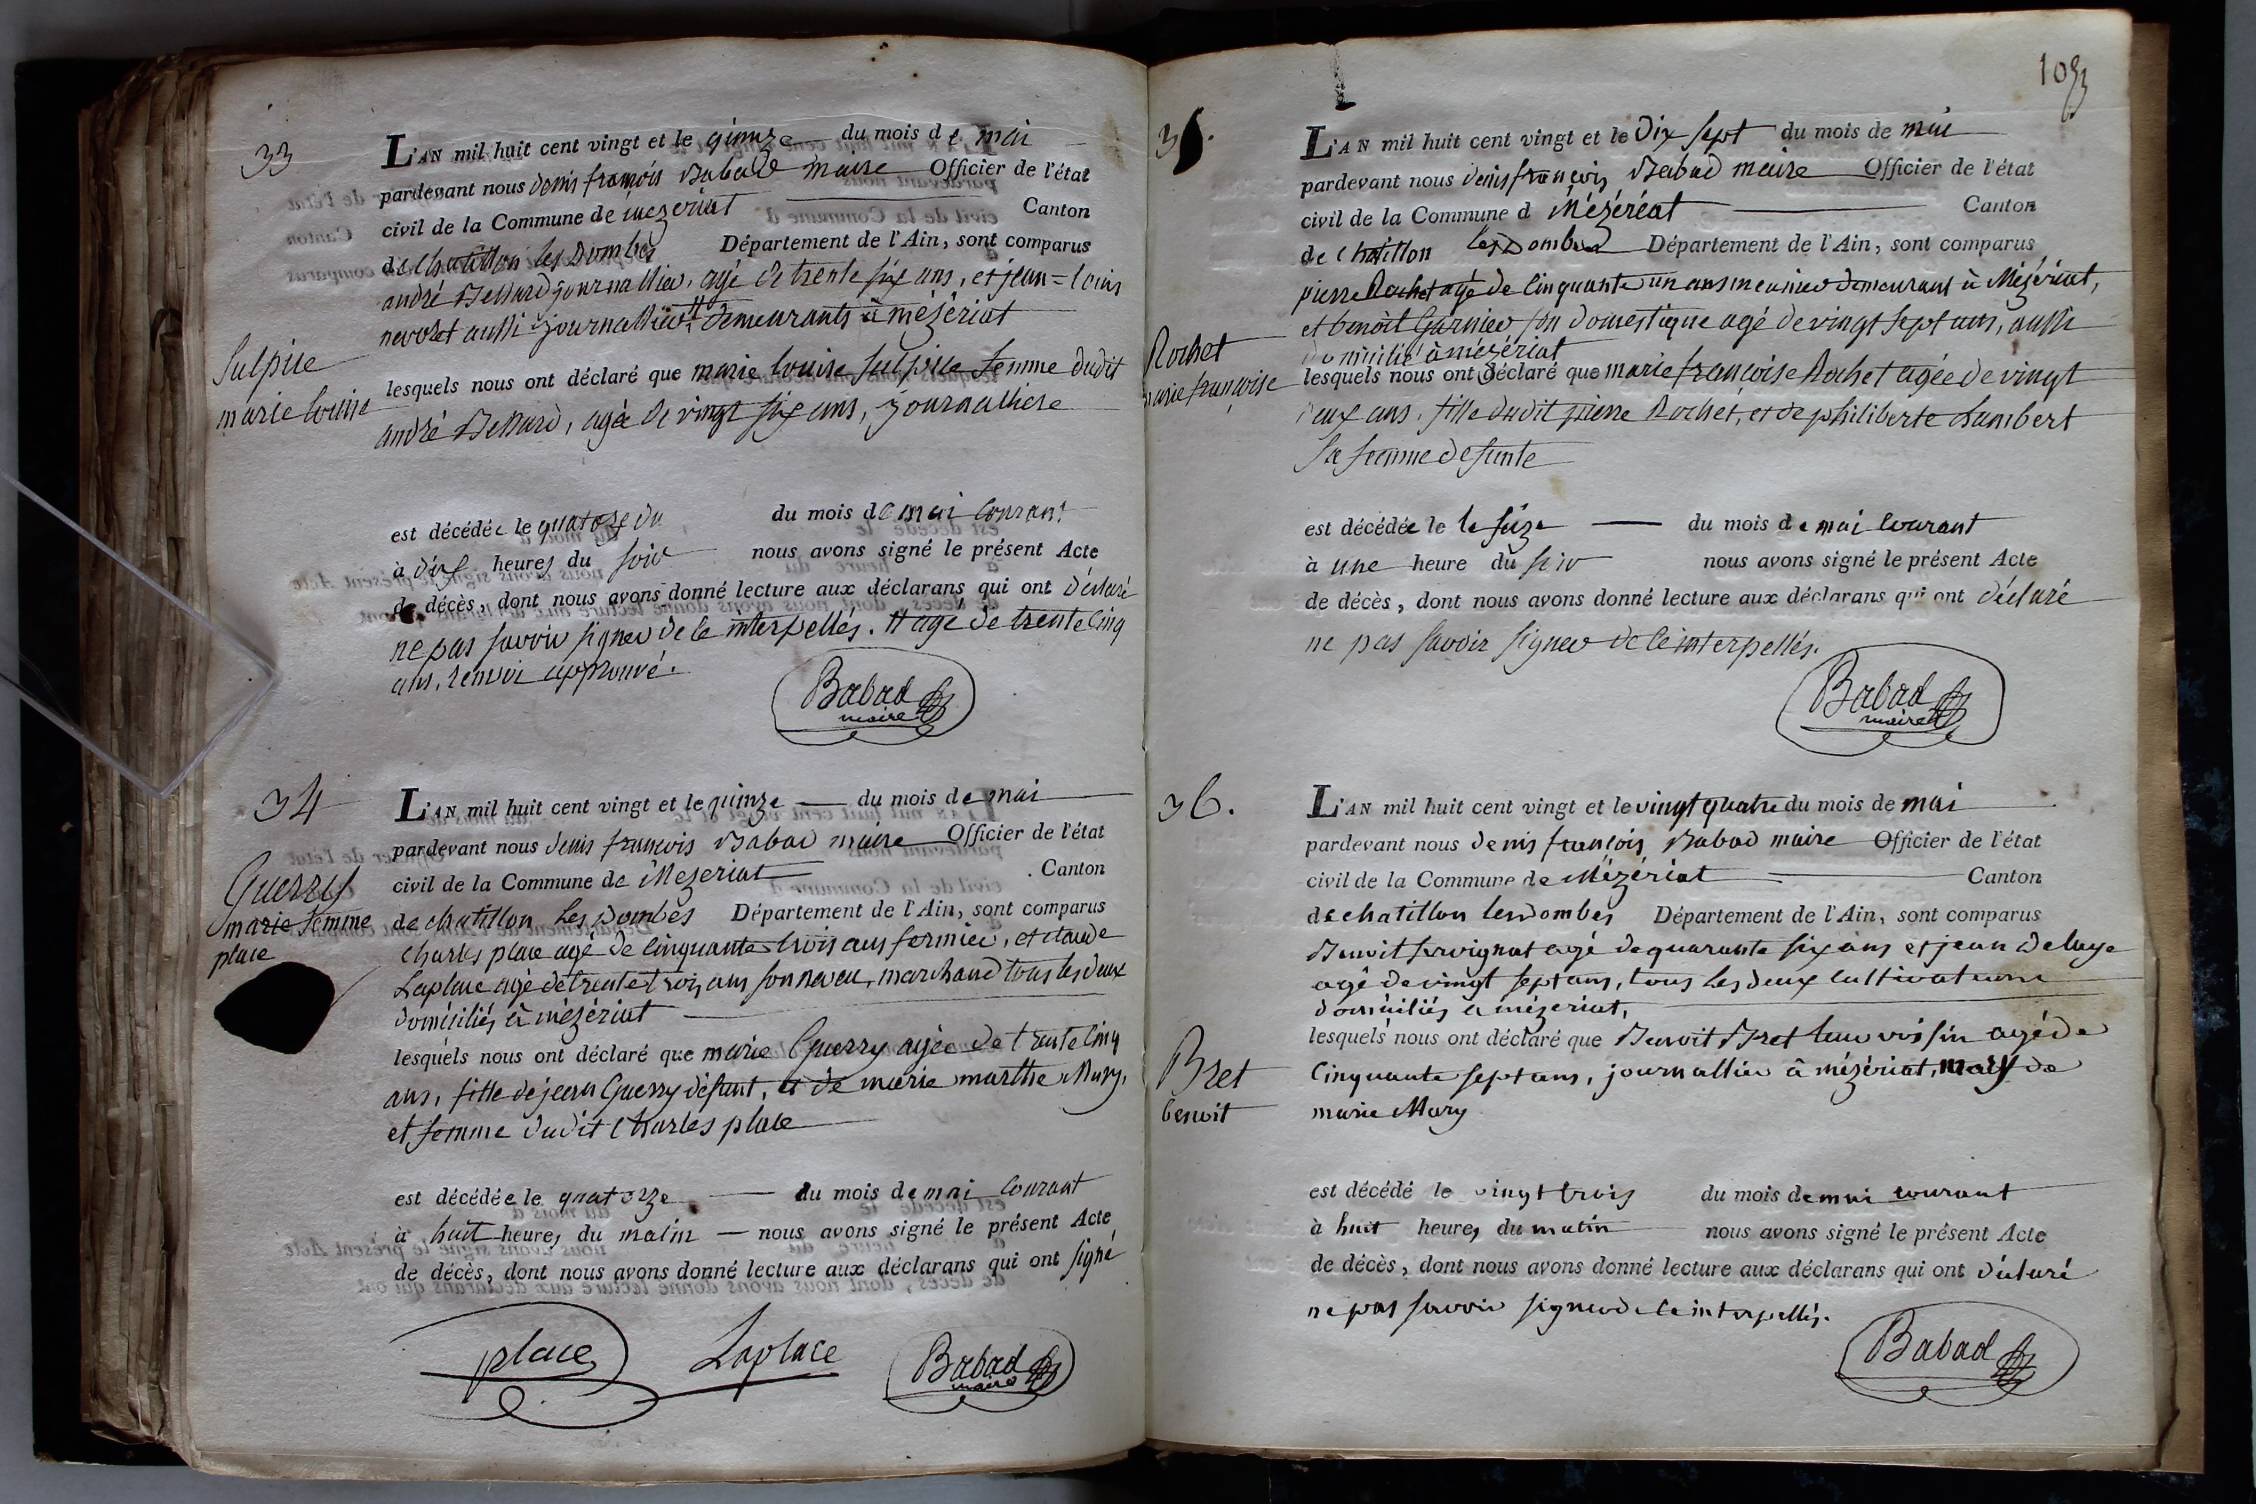 33
L'AN mil huit cent vingt et le quinze du mois de mai
pardevant nous denis françois Babad maire Officier de l'état
civil de la Commune de mezeriat Canton
de chatillon les Dombes Département de l'Ain, sont comparus
andré Bellard journallier, agé de trente six ans, et jean=louis
nevoret aussi journallier, # demeurants à mézériat
Sulpice
marie louise
lesquels nous ont déclaré que marie louise Sulpice femme dudit
andré Bellard, agée de vingt six ans, journaliere
est décédée le quatorze du du mois de mai courant
à dix heures du soir nous avons signé le présent Acte
de décès, dont nous avons donné lecture aux déclarans qui ont déclaré
ne pas savoir signer de ce interpellés. # agé de trente cinq
ans, renvoi approuvé.
Babad
maire
34
L'AN mil huit cent vingt et le quinze du mois de mai
pardevant nous denis francois Babad maire Officier de l'état
civil de la Commune de Mezeriat Canton
de chatillon les Dombes Département de l'Ain, sont comparus
Charles place agé de cinquante trois ans fermier, et claude
Laplace agé de trente trois ans son neveu, marchand tous les deux
domiciliés à mézériat
Guerry
marie femme
place
lesquels nous ont déclaré que marie Guerry agée de trente cinq
ans, fille de jean Guerry défunt, et de marie marthe Mury,
et femme dudit Charles place
est décédée le quatorze du mois de mai courant
à huit heures du matin nous avons signé le présent Acte
de décès, dont nous avons donné lecture aux déclarans qui ont signé
place Laplace Babad
maire
103
L'AN mil huit cent vingt et le Dix sept du mois de mai
pardevant nous denis françois Babad maire Officier de l'état
civil de la Commune d Mézériat Canton
de chatillon les Dombes Département de l'Ain, sont comparus
pierre Rochet agé de cinquante un ans meunier demeurant à Mézériat,
et benoit Garnier son domestique agé de vingt sept ans, aussi
domicilié à mézériat
Rochet
marie françoise
lesquels nous ont déclaré que marie françoise Rochet agée de vingt
deux ans, fille dudit pierre Rochet, et de philiberte Chambert
sa femme defunte
est décédée le le seize du mois de mai courant
à une heure du soir nous avons signé le présent Acte
de décès, dont nous avons donné lecture aux déclarans qui ont déclaré
ne pas savoir signer de ce interpellés.
Babad
maire
36.
L'AN mil huit cent vingt et le vingt quatre du mois de mai
pardevant nous denis françois Babad maire Officier de l'état
civil de la Commune de Mézériat Canton
de chatillon les Dombes Département de l'Ain, sont comparus
Benoit fervignat agé de quarante six ans et jean Deluye
agé de vingt sept ans, tous les deux cultivateurs
domiciliés à mézériat,
Bret
benoit
lesquels nous ont déclaré que Benoit Bret leur voisin agé de
cinquante sept ans, journallier à mézériat, mary de
marie Mary
est décédé le vingt trois du mois de mai courant
à huit heures du matin nous avons signé le présent Acte
de décès, dont nous avons donné lecture aux déclarans qui ont déclaré
ne pas savoir signer de ce interpellés.
Babad